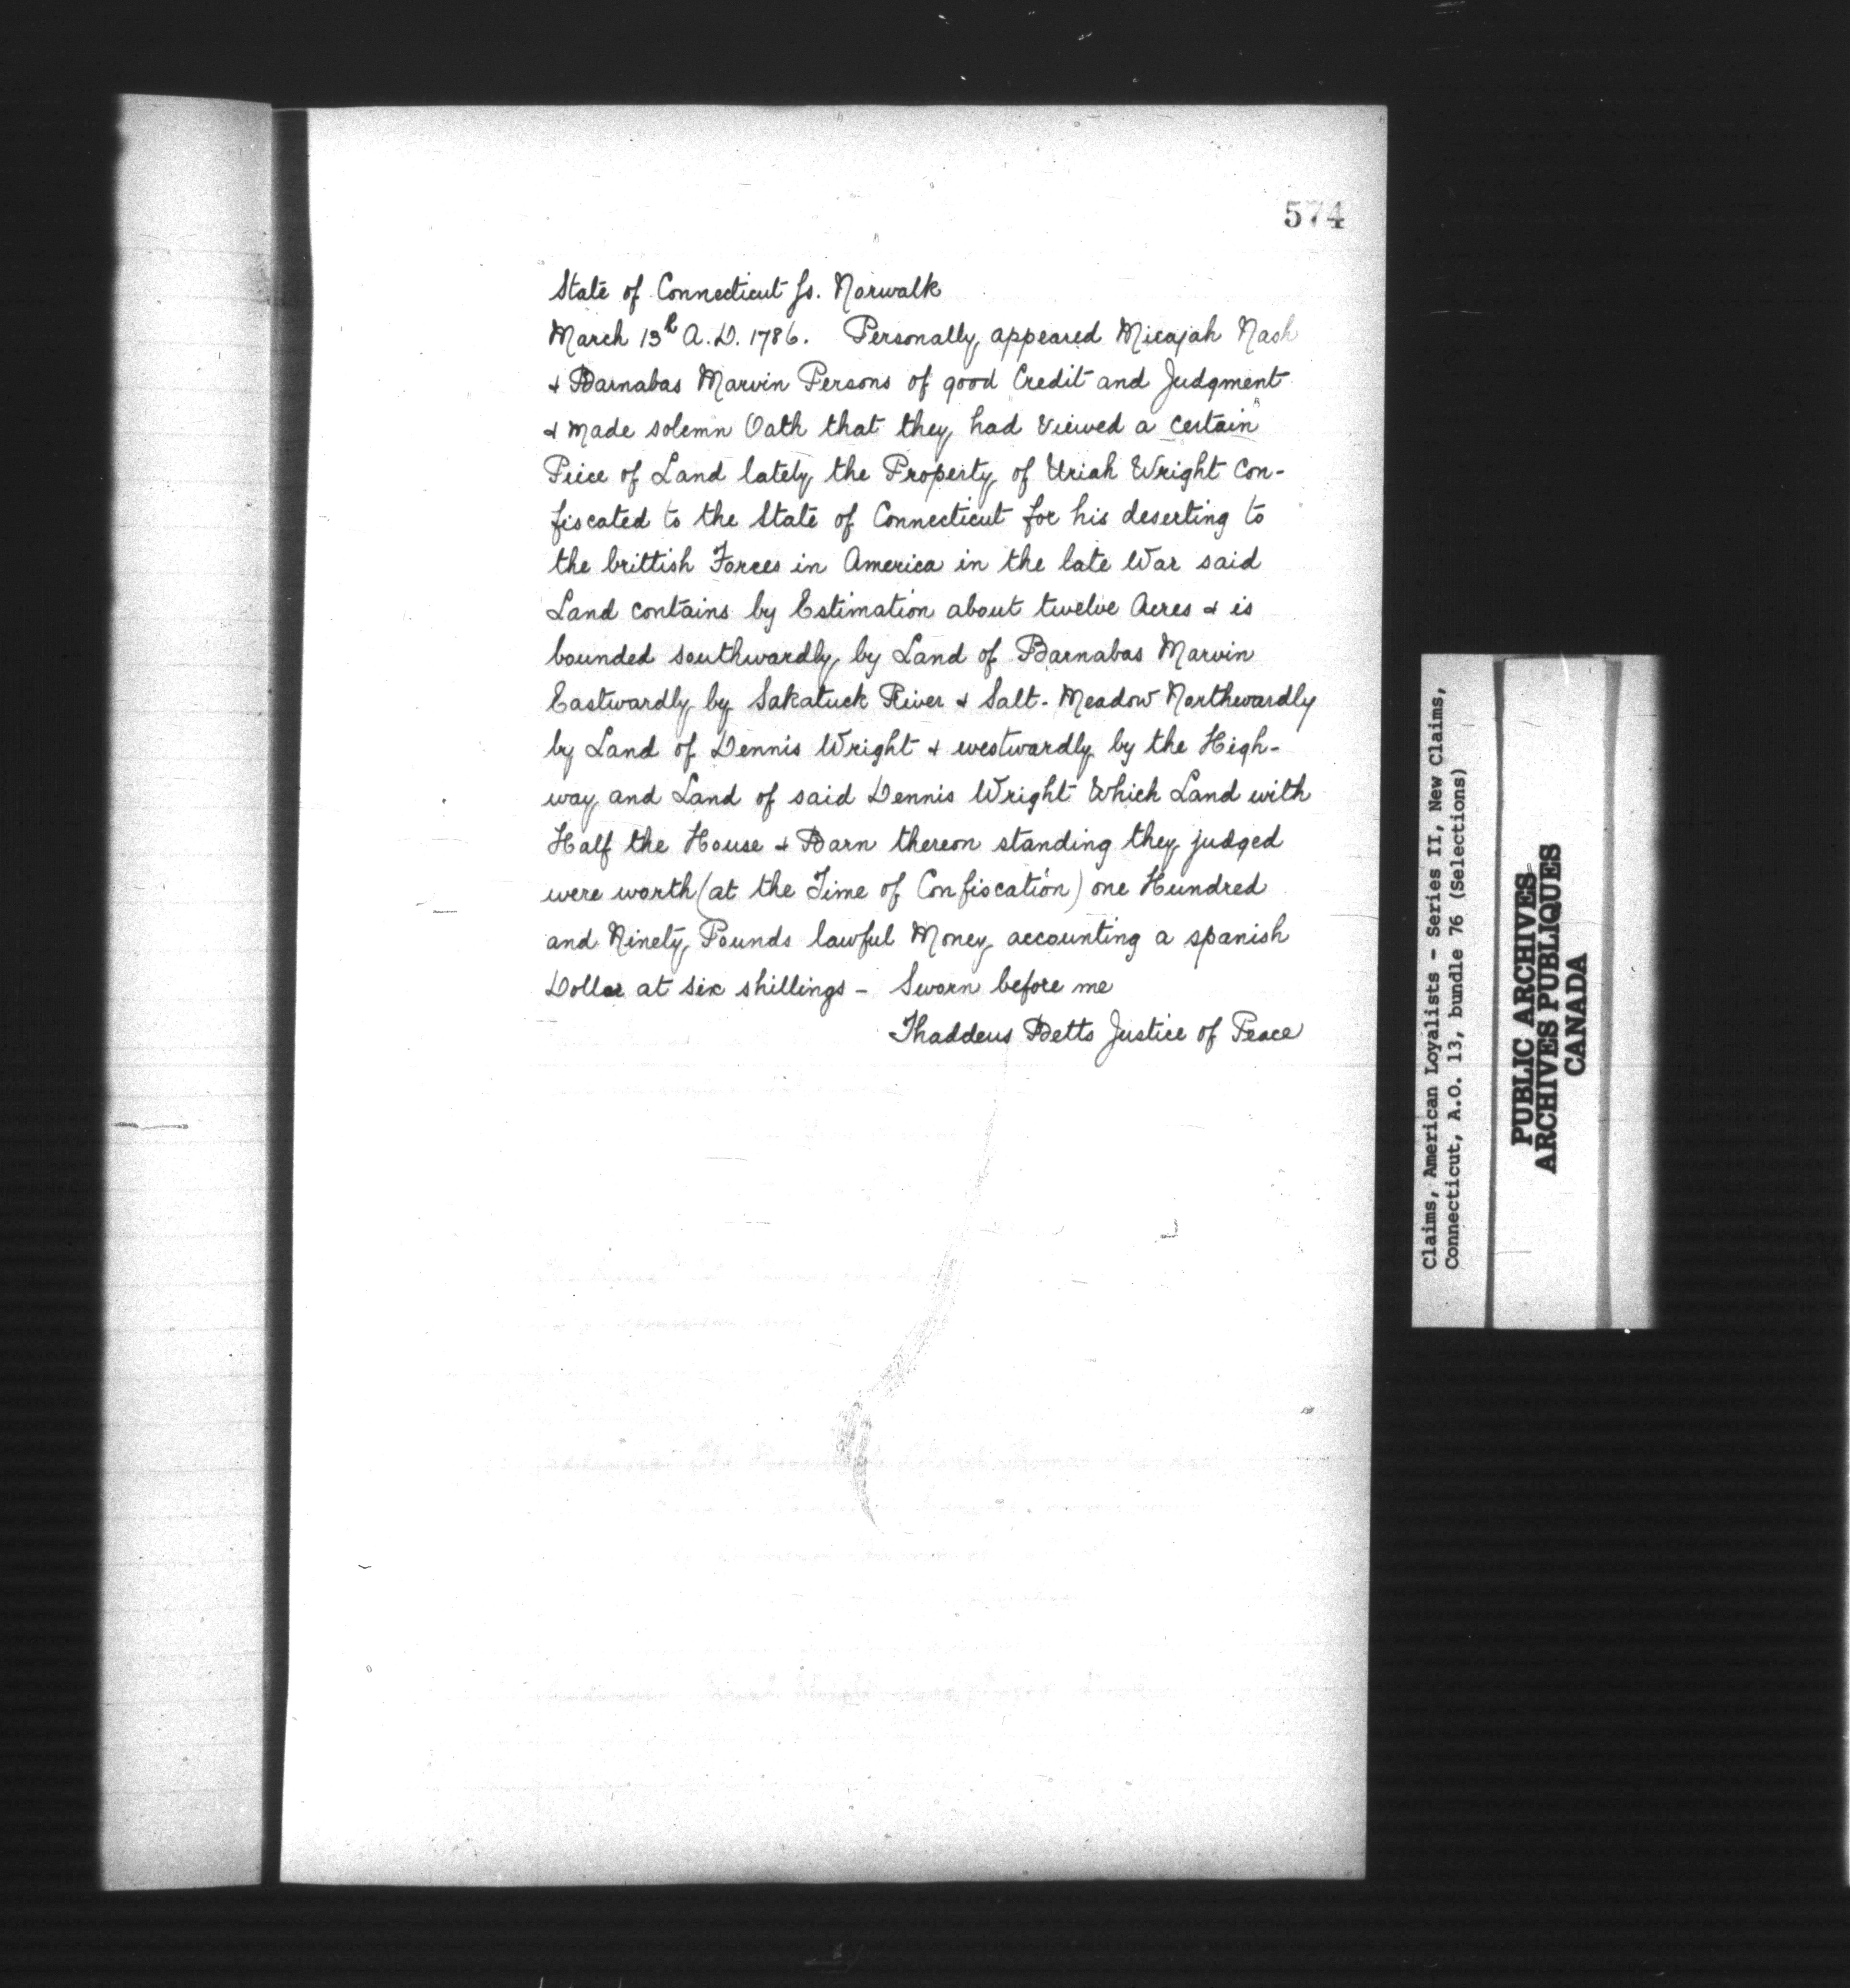 574
State of Connecticut Ss. Norwalk
March 13th A.D. 1786. Personally appeared Micajah Nash
& Barnabas Marvin Persons of good Credit and Judgment
& made solemn Oath that they had Viewed a certain
Peice of Land lately the Property of Uriah Wright Con-
fiscated to the State of Connecticut for his deserting to
the brittish Forces in America in the late War said
Land contains by Estimation about twelve Acres & is
bounded southwardly by Land of Barnabas Marvin
Eastwardly by Sakatuck River & Salt-Meadow Northwardly
by Land of Dennis Wright & westwardly by the High-
way and Land of said Dennis Wright Which Land with
Half the House & Barn thereon standing they judged
were worth (at the Time of Confiscation) one Hundred
and Ninety Pounds lawful Money accounting a spanish
Dollar at six shillings - Sworn before me
Thaddeus Betts Justice of Peace
Claims, American Loyalists - Series II, New Claims,
Connecticut, A.O. 13, bundle 76 (Selections)
PUBLIC ARCHIVES
ARCHIVES PUBLIQUES
CANADA